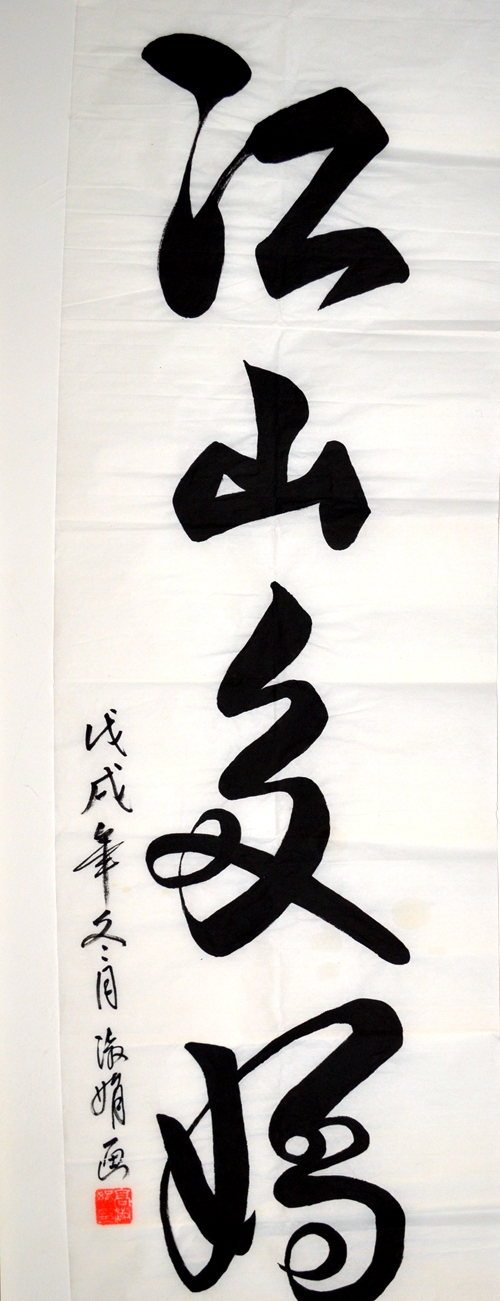 江山多娇
戊戌年冬月淑娟画